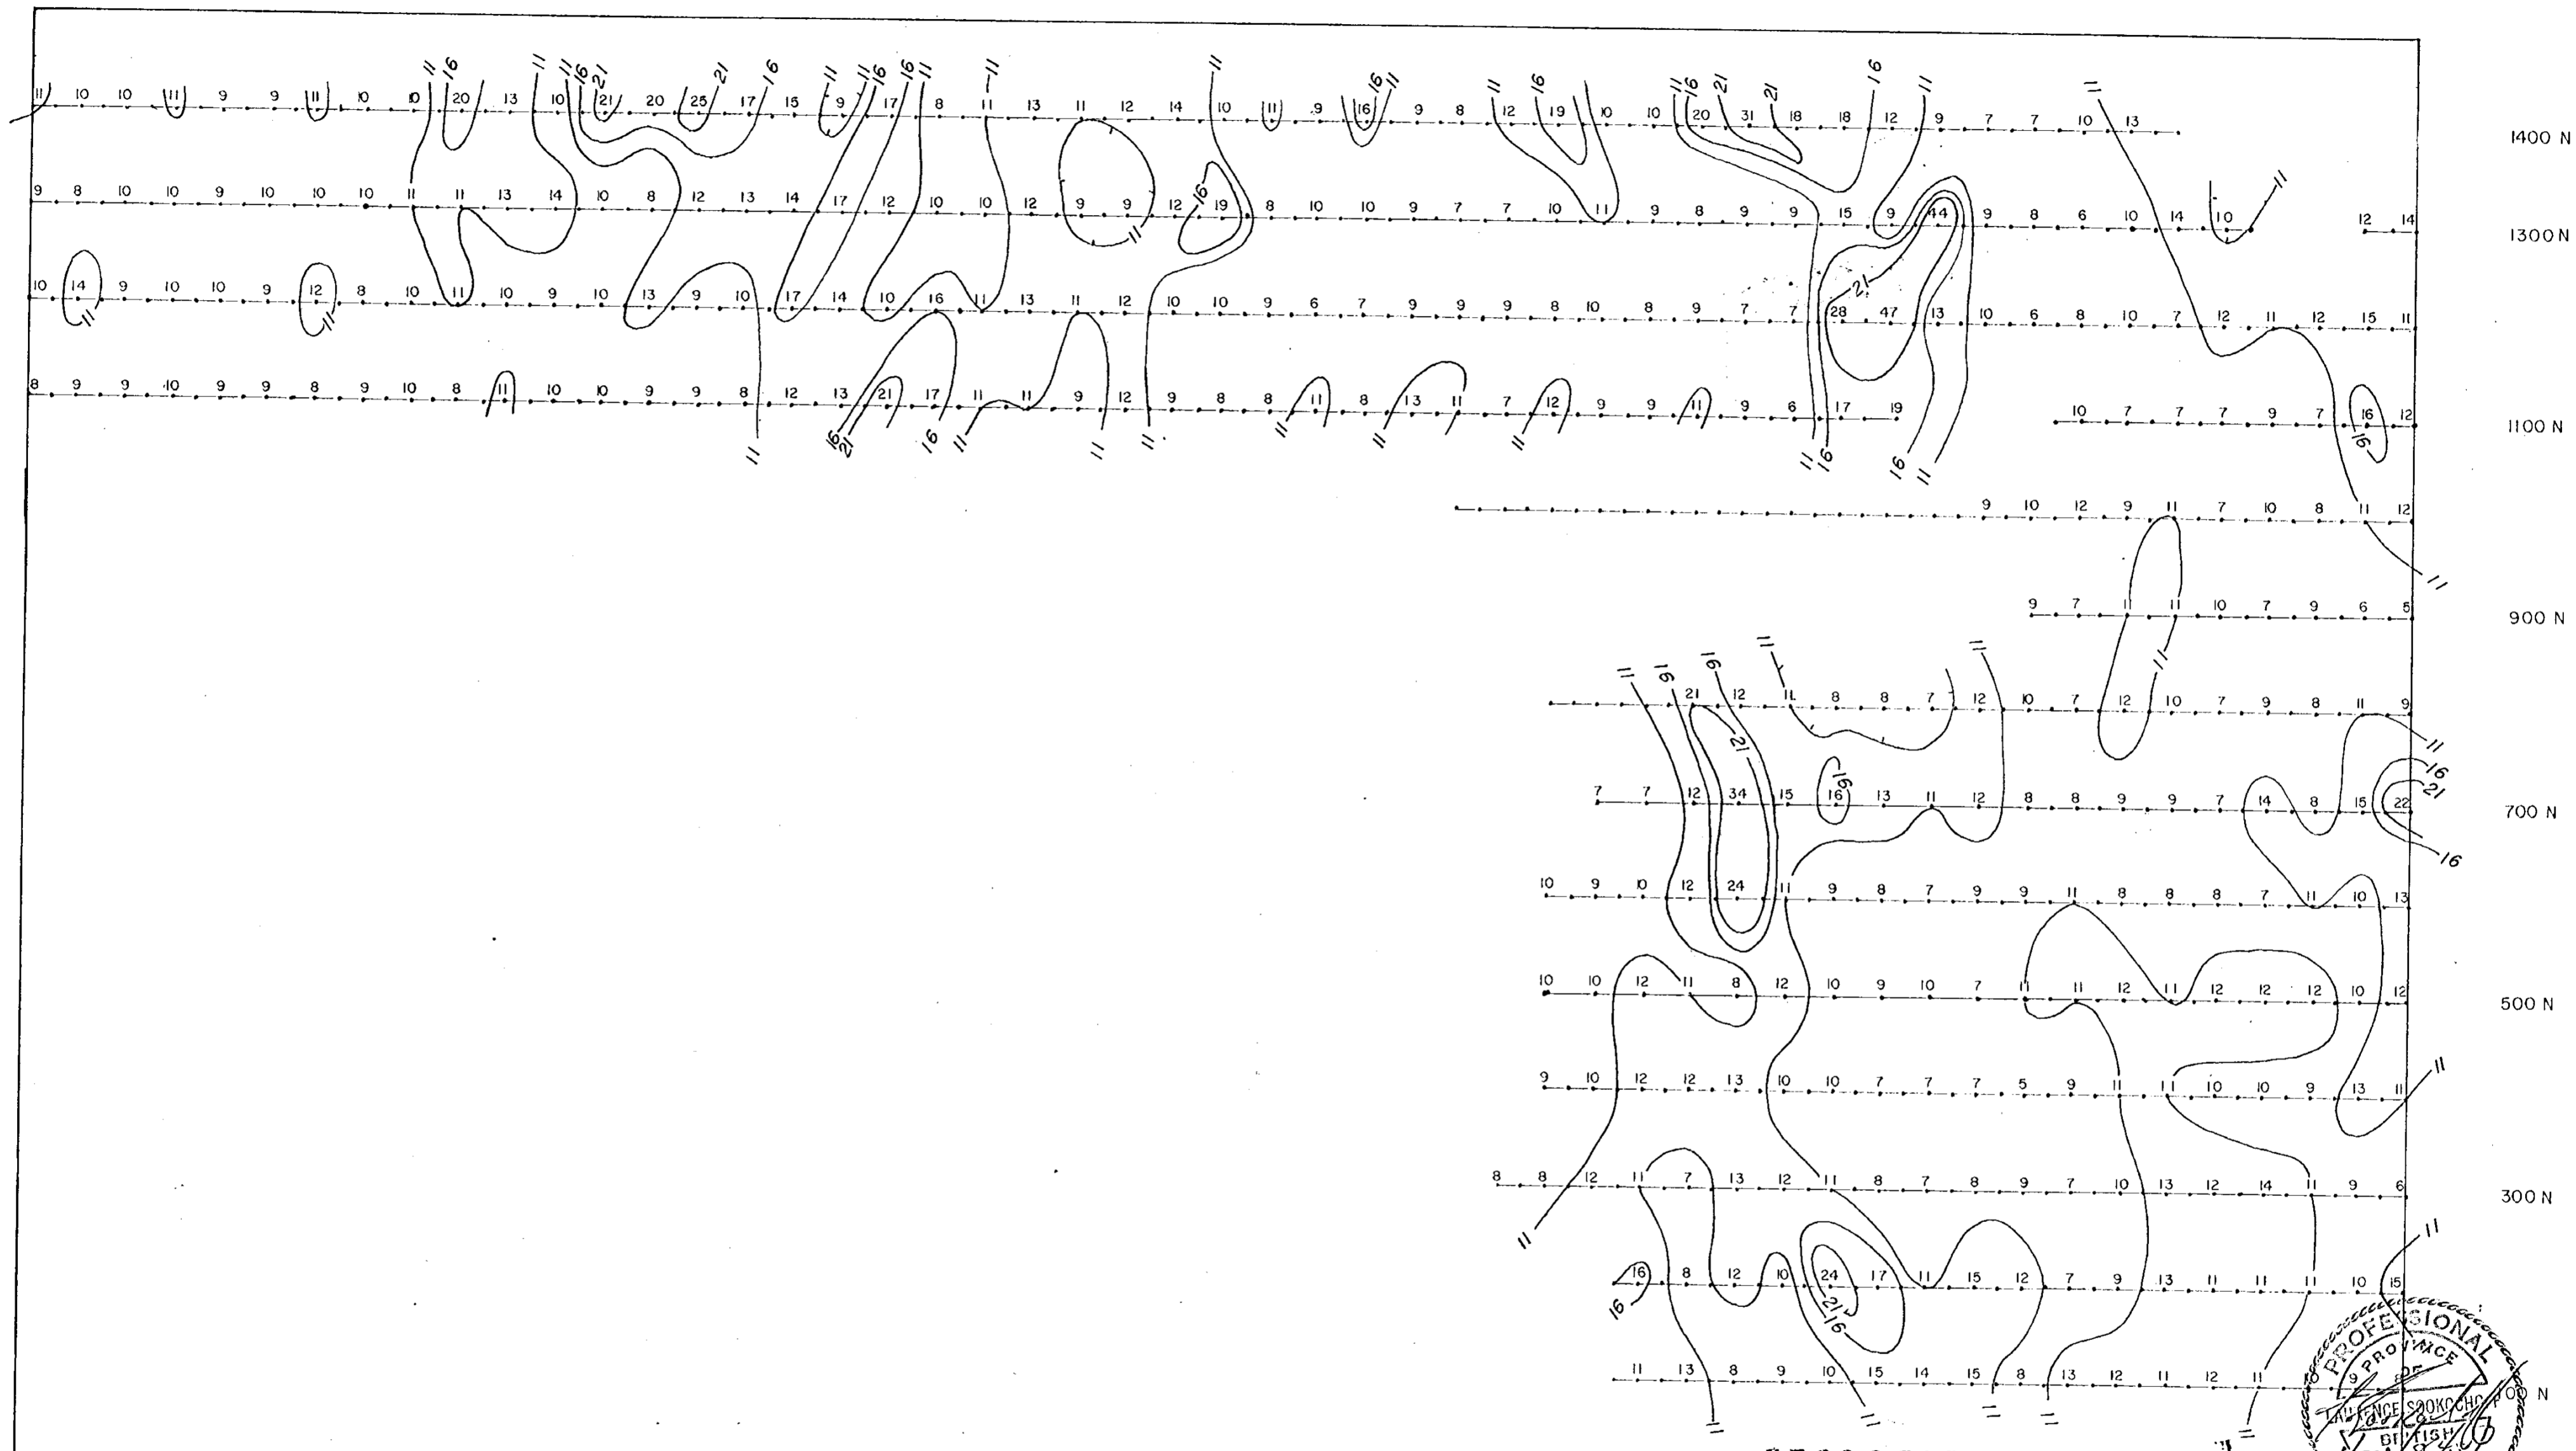 11 10 10 11 9 9 11 10 10 20 13 10 21 20 25 17 15 9 17 8 11 13 11 12 14 10 11 9 16 9 8 12 19 10 10 20 31 18 18 12 9 7 7 10 13 1400 N
9 8 10 10 9 10 10 10 11 11 13 14 10 8 12 13 14 17 12 10 10 12 9 9 12 19 8 10 10 9 7 7 10 11 9 8 9 9 15 9 44 9 8 6 10 14 10 12 14 1300 N
10 14 9 10 10 9 12 8 10 11 10 9 10 13 9 10 17 14 10 16 11 13 11 12 10 10 9 6 7 9 9 9 8 10 8 9 7 7 28 47 13 10 6 8 10 7 12 11 12 15 11
8 9 9 10 9 9 8 9 10 8 11 10 10 9 9 8 12 13 21 17 11 11 9 12 9 8 8 11 8 13 11 7 12 9 9 11 9 6 17 19 10 7 7 7 9 7 16 12 1100 N
9 10 12 9 11 7 10 8 11 12
9 7 11 11 10 7 9 6 5 900 N
21 12 11 8 8 7 12 10 7 12 10 7 9 8 11 9
7 7 12 34 15 16 13 11 12 8 8 9 9 7 14 8 15 22 700 N
10 9 10 12 24 11 9 8 7 9 9 11 8 8 8 7 11 10 13
10 10 12 11 8 12 10 9 10 7 11 11 12 11 12 12 12 10 12 500 N
9 10 12 12 13 10 10 7 7 7 5 9 11 11 10 10 9 13 11
8 8 12 11 7 13 12 11 8 7 8 9 7 10 13 12 14 11 9 6 300 N
16 8 12 10 24 17 11 15 12 7 9 13 11 11 11 10 15
11 13 8 9 10 15 14 15 8 13 12 11 12 11 9 8 00 N
PROFESSIONAL
PROVINCE
OF
BRITISH